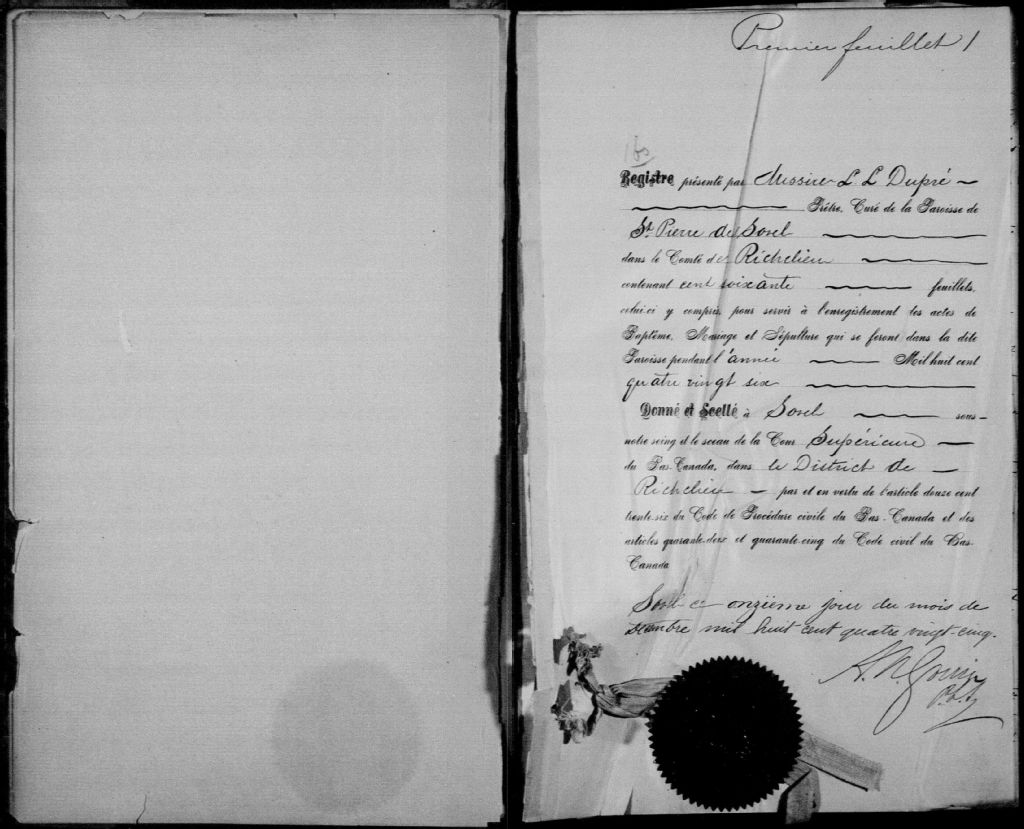 Premier feuillet 1
Registre présenté par Messire L. L. Dupré
Prêtre, Curé de la Paroisse de
St. Pierre de Sorel
dans le Comté de Richelieu
contenant cent soixante feuillets,
celui-ci y compris, pour servir à l'enregistrement des actes de
Baptême, Mariage et Sépulture qui se feront dans la dite
Paroisse pendant l'année Mil huit cent
quatre vingt six
Donné et Scellé à Sorel sous-
notre seing et le sceau de la Cour Supérieure
du Bas-Canada, dans le District de
Richelieu par et en vertu de l'article douze cent
trente-six du Code de Procédure civile du Bas-Canada et des
articles quarante-deux et quarante-cinq du Code civil du Bas-
Canada
Sorel ce onzième jour du mois de
décembre mil huit cent quatre vingt-cinq.
A. N. Gouin